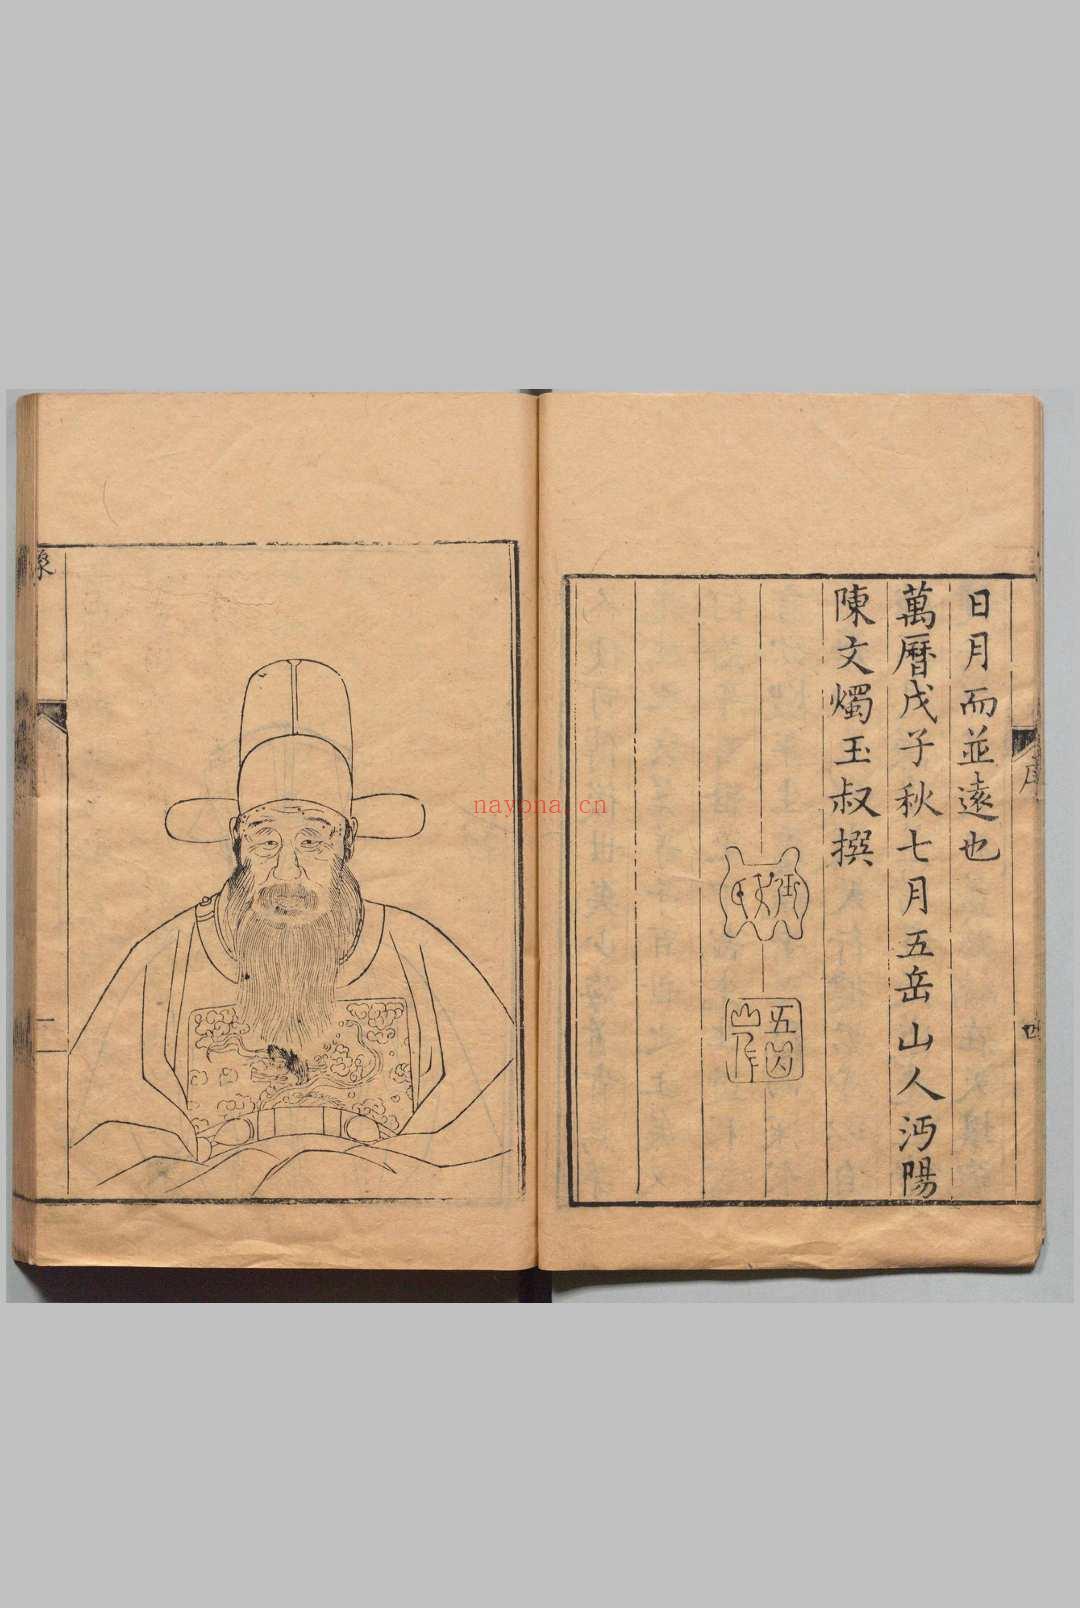 日月而並遠也
萬曆戊子秋七月五岳山人沔陽
陳文燭玉叔撰
序
四
五岳山人
像
二
nayona.cn